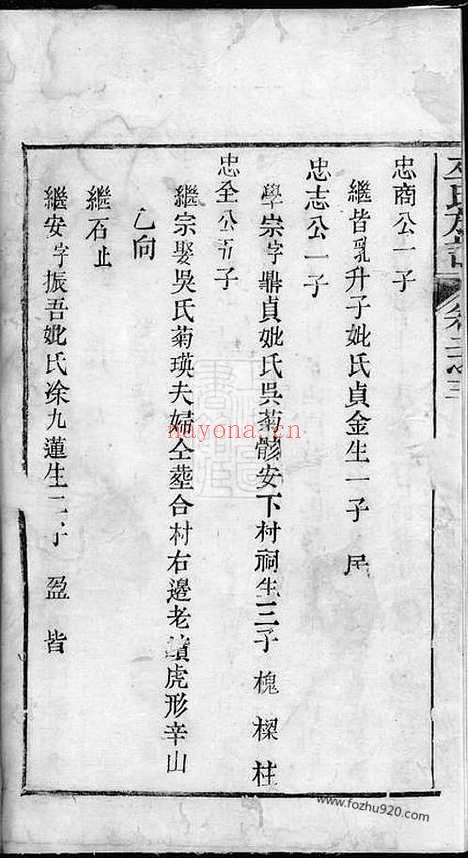 忠商公一子
繼皆乳升子妣氏貞金生一子
忠志公一子
學宗字鼎貞妣氏吳菊骸安下村祠生三子 槐樑柱
忠全公五子
繼宗娶吳氏菊瑛夫婦仝塟合村右邊老墳虎形辛山
乙向
繼石止
繼安字振吾妣氏涂九蓮生二子 盈 皆
nayona.cn
www.fozhu920.com